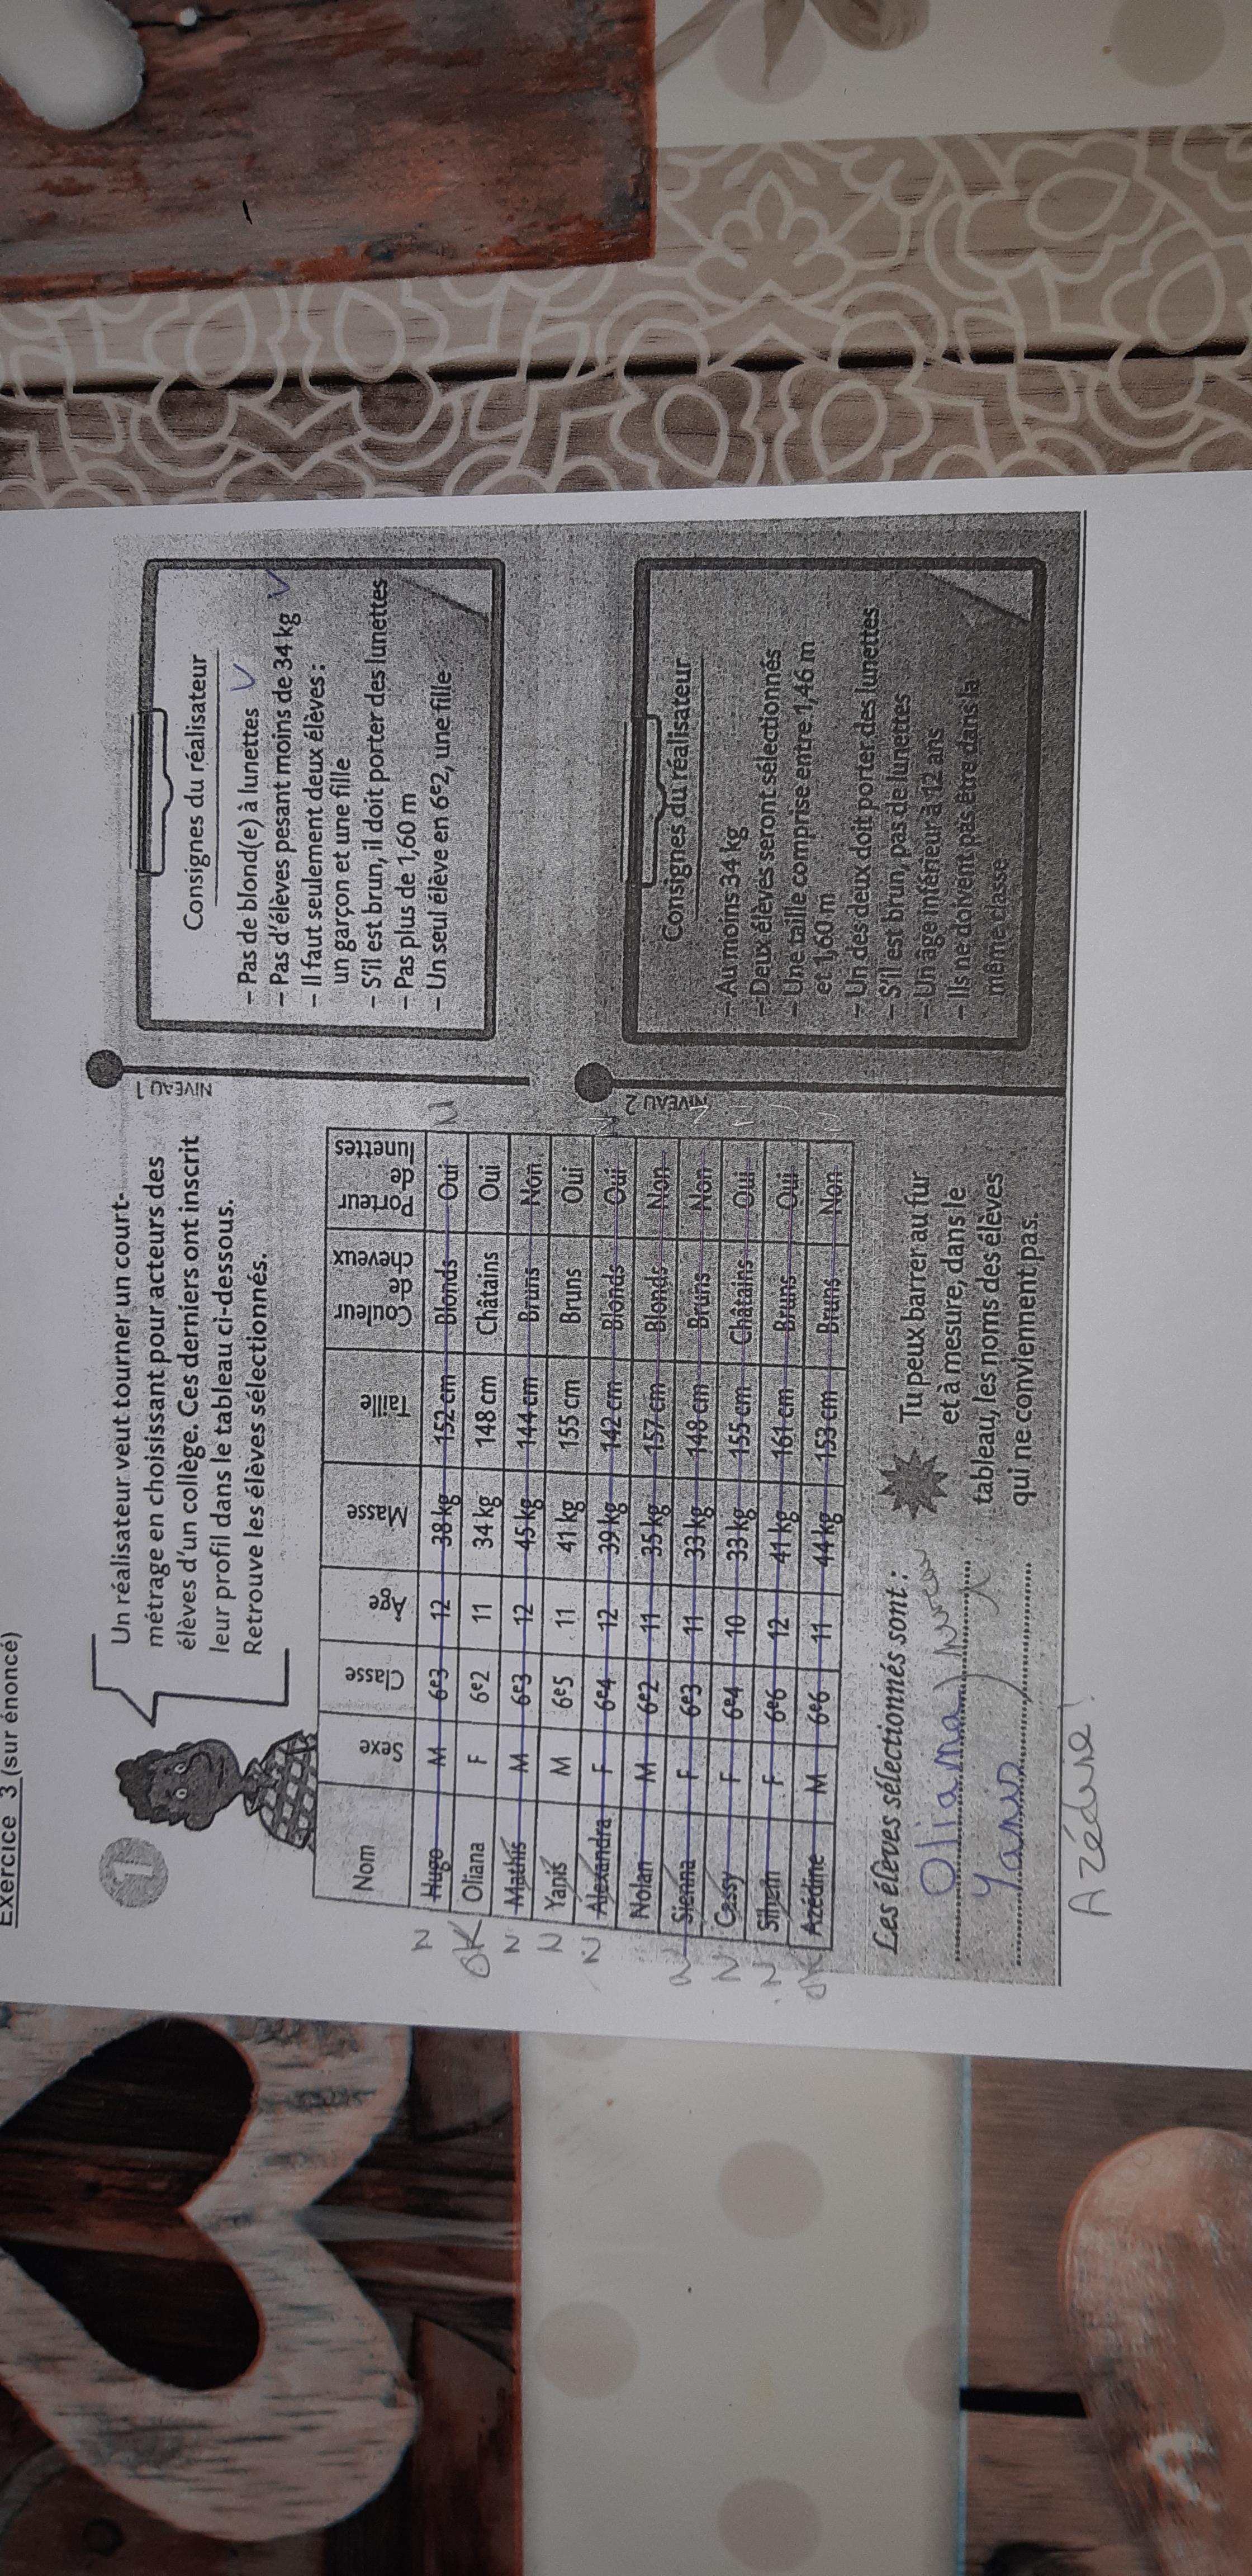 Exercice 3 (sur énoncé)
1
Un réalisateur veut tourner un court-
métrage en choisissant pour acteurs des
élèves d'un collège. Ces derniers ont inscrit
leur profil dans le tableau ci-dessous.
Retrouve les élèves sélectionnés.
Nom Sexe Classe Âge Masse Taille Couleur de cheveux Porteur de lunettes
N Hugo M 6e3 12 38 kg 152 cm Blonds Oui N
OK Oliana F 6e2 11 34 kg 148 cm Châtains Oui
N Mathis M 6e3 12 45 kg 144 cm Bruns Non
N Yanis M 6e5 11 41 kg 155 cm Bruns Oui
N Alexandra F 6e4 12 39 kg 142 cm Blonds Oui
Nolan M 6e2 11 35 kg 157 cm Blonds Non
Sienna F 6e3 11 33 kg 148 cm Bruns Non
N Cassy F 6e4 10 33 kg 155 cm Châtains Oui
N F 6e6 12 41 kg 161 cm Bruns Oui
OK Azédine M 6e6 11 44 kg 153 cm Bruns Non
Les élèves sélectionnés sont :
Oliana
Yanis
Azédine !
Tu peux barrer au fur
et à mesure, dans le
tableau, les noms des élèves
qui ne conviennent pas.
NIVEAU 1
Consignes du réalisateur
– Pas de blond(e) à lunettes V
– Pas d'élèves pesant moins de 34 kg V
– Il faut seulement deux élèves :
un garçon et une fille
– S'il est brun, il doit porter des lunettes
– Pas plus de 1,60 m
– Un seul élève en 6e2, une fille
NIVEAU 2
Consignes du réalisateur
– Au moins 34 kg
– Deux élèves seront sélectionnés
– Une taille comprise entre 1,46 m
et 1,60 m
– Un des deux doit porter des lunettes
– S'il est brun, pas de lunettes
– Un âge inférieur à 12 ans
– Ils ne doivent pas être dans la
même classe